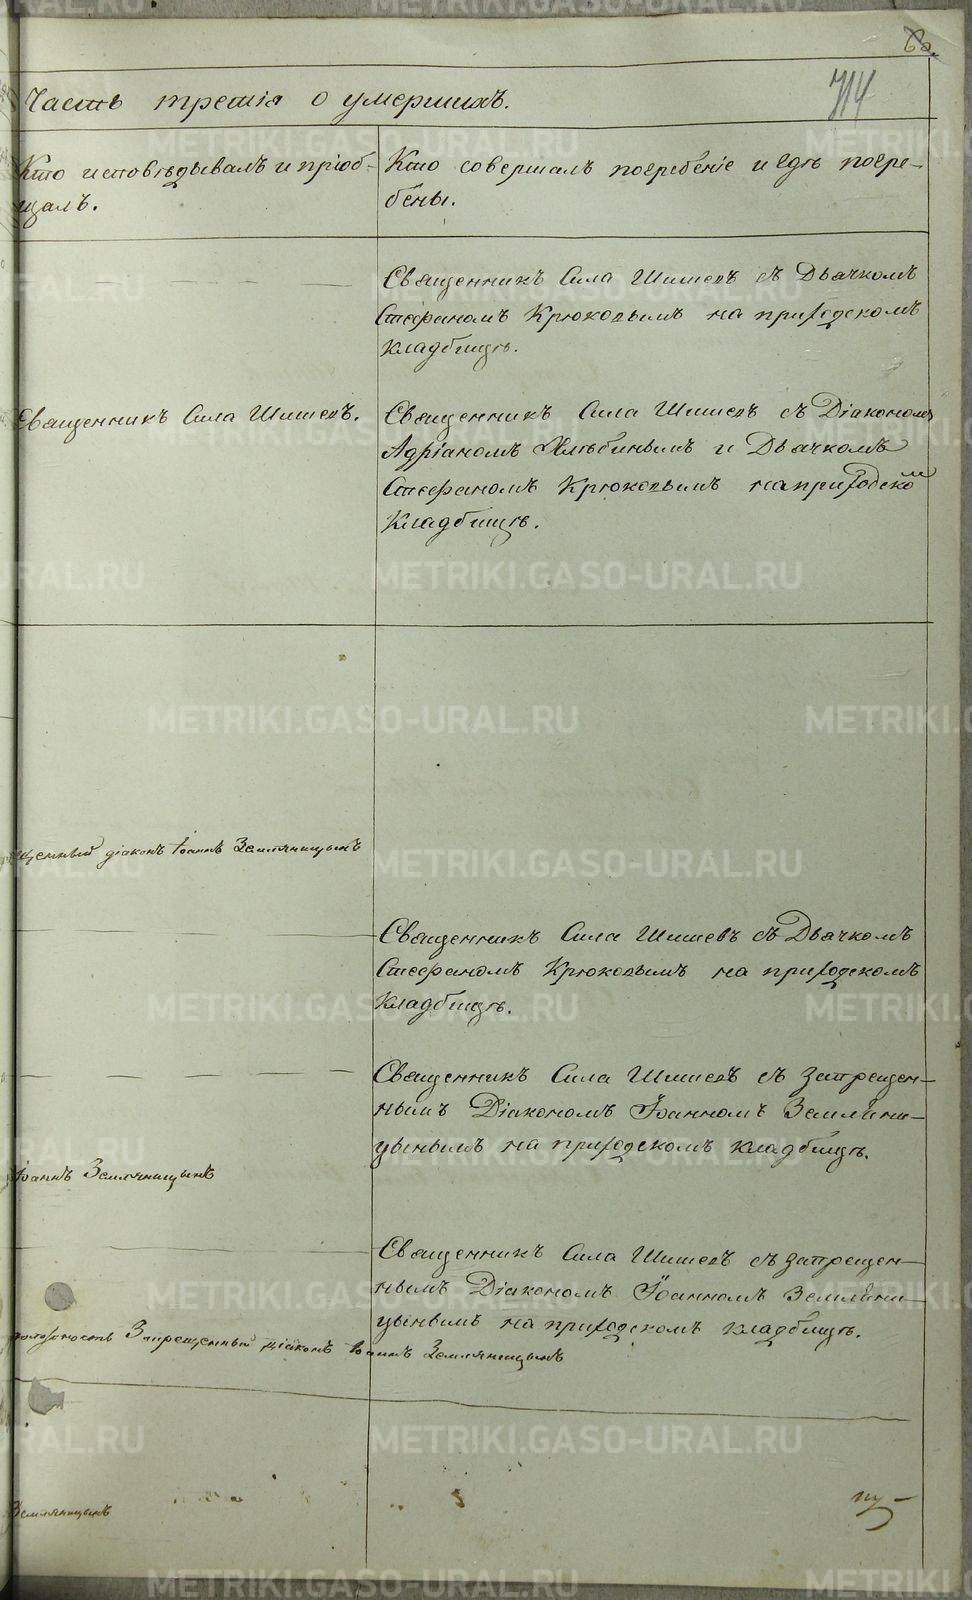 714
Часть третія о умершихъ.
Кто исповѣдывалъ и пріоб-
щалъ.
Кто совершалъ погребеніе и гдѣ погре-
бены.
Священникъ Сила Шишевъ съ Дьячкомъ
Стефаномъ Крюковымъ на приходскомъ
кладбищѣ.
Священникъ Сила Шишевъ.
Священникъ Сила Шишевъ съ Діакономъ
Адріаномъ Хлѣбинымъ и Дьячкомъ
Стефаномъ Крюковымъ на приходском
кладбищѣ.
щенный діаконъ Іоаннъ Земляницынъ
Священникъ Сила Шишевъ съ Дьячкомъ
Стефаномъ Крюковымъ на приходскомъ
кладбищѣ.
Священникъ Сила Шишевъ съ запрещен-
нымъ Діакономъ Іоанномъ Земляни-
цынымъ на приходскомъ кладбищѣ.
Іоаннъ Земляницынъ
Священникъ Сила Шишевъ съ запрещен-
нымъ Діакономъ Іоанномъ Земляни-
цынымъ на приходскомъ кладбищѣ.
Запрещенный діаконъ Іоаннъ Земляницынъ
Земляницынъ
METRIKI.GASO-URAL.RU